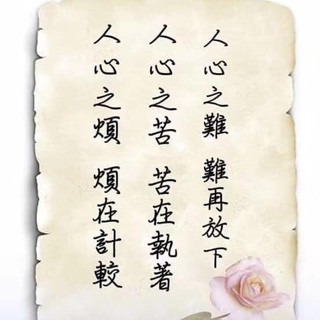 人心之難 難再放下
人心之苦 苦在執著
人心之煩 煩在計較